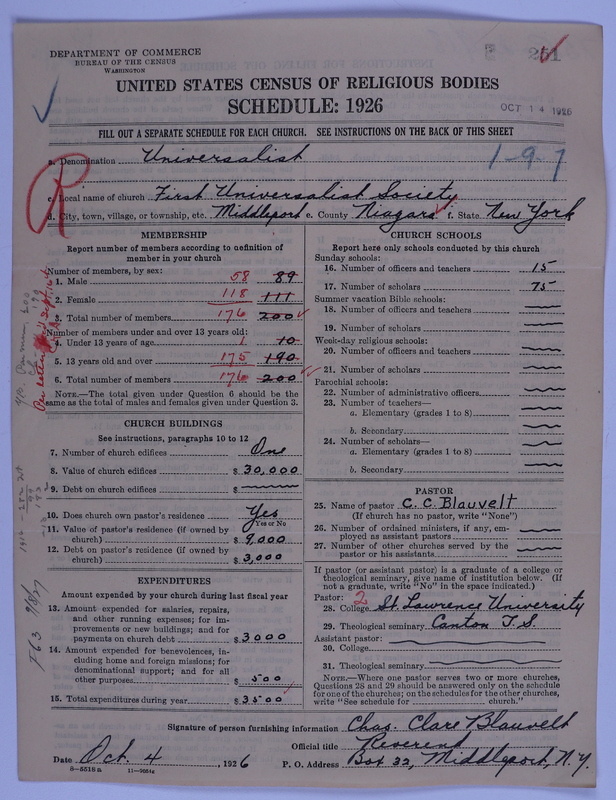 DEPARTMENT OF COMMERCE
BUREAU OF THE CENSUS
WASHINGTON
251
UNITED STATES CENSUS OF RELIGIOUS BODIES
SCHEDULE: 1926
OCT 14 1926
FILL OUT A SEPARATE SCHEDULE FOR EACH CHURCH. SEE INSTRUCTIONS ON THE BACK OF THIS SHEET
a. Denomination Universalist
1-9-7
R
c. Local name of church First Universalist Society
d. City, town, village, or township, etc. Middleport e. County Niagara f. State New York
MEMBERSHIP
Report number of members according to definition of
member in your church
Number of members, by sex:
1. Male 58 89
2. Female 118 111
3. Total number of members 176 200
Number of members under and over 13 years old:
4. Under 13 years of age 1 10
5. 13 years old and over 175 190
6. Total number of members 176 200
NOTE.—The total given under Question 6 should be
same as the total of males and females given under Question 3.
CHURCH BUILDINGS
See instructions, paragraphs 10 to 12
7. Number of church edifices One
8. Value of church edifices $30,000
9. Debt on church edifices $
10. Does church own pastor's residence Yes
Yes or No
11. Value of pastor's residence (if owned by
church) $9,000
12. Debt on pastor's residence (if owned by
church) $3,000
EXPENDITURES
Amount expended by your church during last fiscal year
13. Amount expended for salaries, repairs,
and other running expenses; for im-
provements or new buildings; and for
payments on church debt $3000
14. Amount expended for benevolences, in-
cluding home and foreign missions; for
denominational support; and for all
other purposes $500
15. Total expenditures during year $3500
CHURCH SCHOOLS
Report here only schools conducted by this church
Sunday schools:
16. Number of officers and teachers 15
17. Number of scholars 75
Summer vacation Bible schools:
18. Number of officers and teachers
19. Number of scholars
Week-day religious schools:
20. Number of officers and teachers
21. Number of scholars
Parochial schools:
22. Number of administrative officers
23. Number of teachers—
a. Elementary (grades 1 to 8)
b. Secondary
24. Number of scholars—
a. Elementary (grades 1 to 8)
b. Secondary
PASTOR
25. Name of pastor C. C. Blauvelt
(If church has no pastor, write "None")
26. Number of ordained ministers, if any, em-
ployed as assistant pastors
27. Number of other churches served by the
pastor or his assistants
If pastor (or assistant pastor) is a graduate of a college or
theological seminary, give name of institution below. (If
not a graduate, write "No" in the space indicated.)
Pastor: 2
28. College St Lawrence University
29. Theological seminary Canton T. S.
Assistant pastor:
30. College
31. Theological seminary
NOTE.—Where one pastor serves two or more churches,
Questions 28 and 29 should be answered only on the schedule
for one of the churches; on the schedules for the other churches,
write "See schedule for church."
Signature of person furnishing information Chas. Clare Blauvelt
Official title Reverend
Date Oct. 4, 1926 P. O. Address Box 32, Middleport, N.Y.
8-5518a 11-9664a